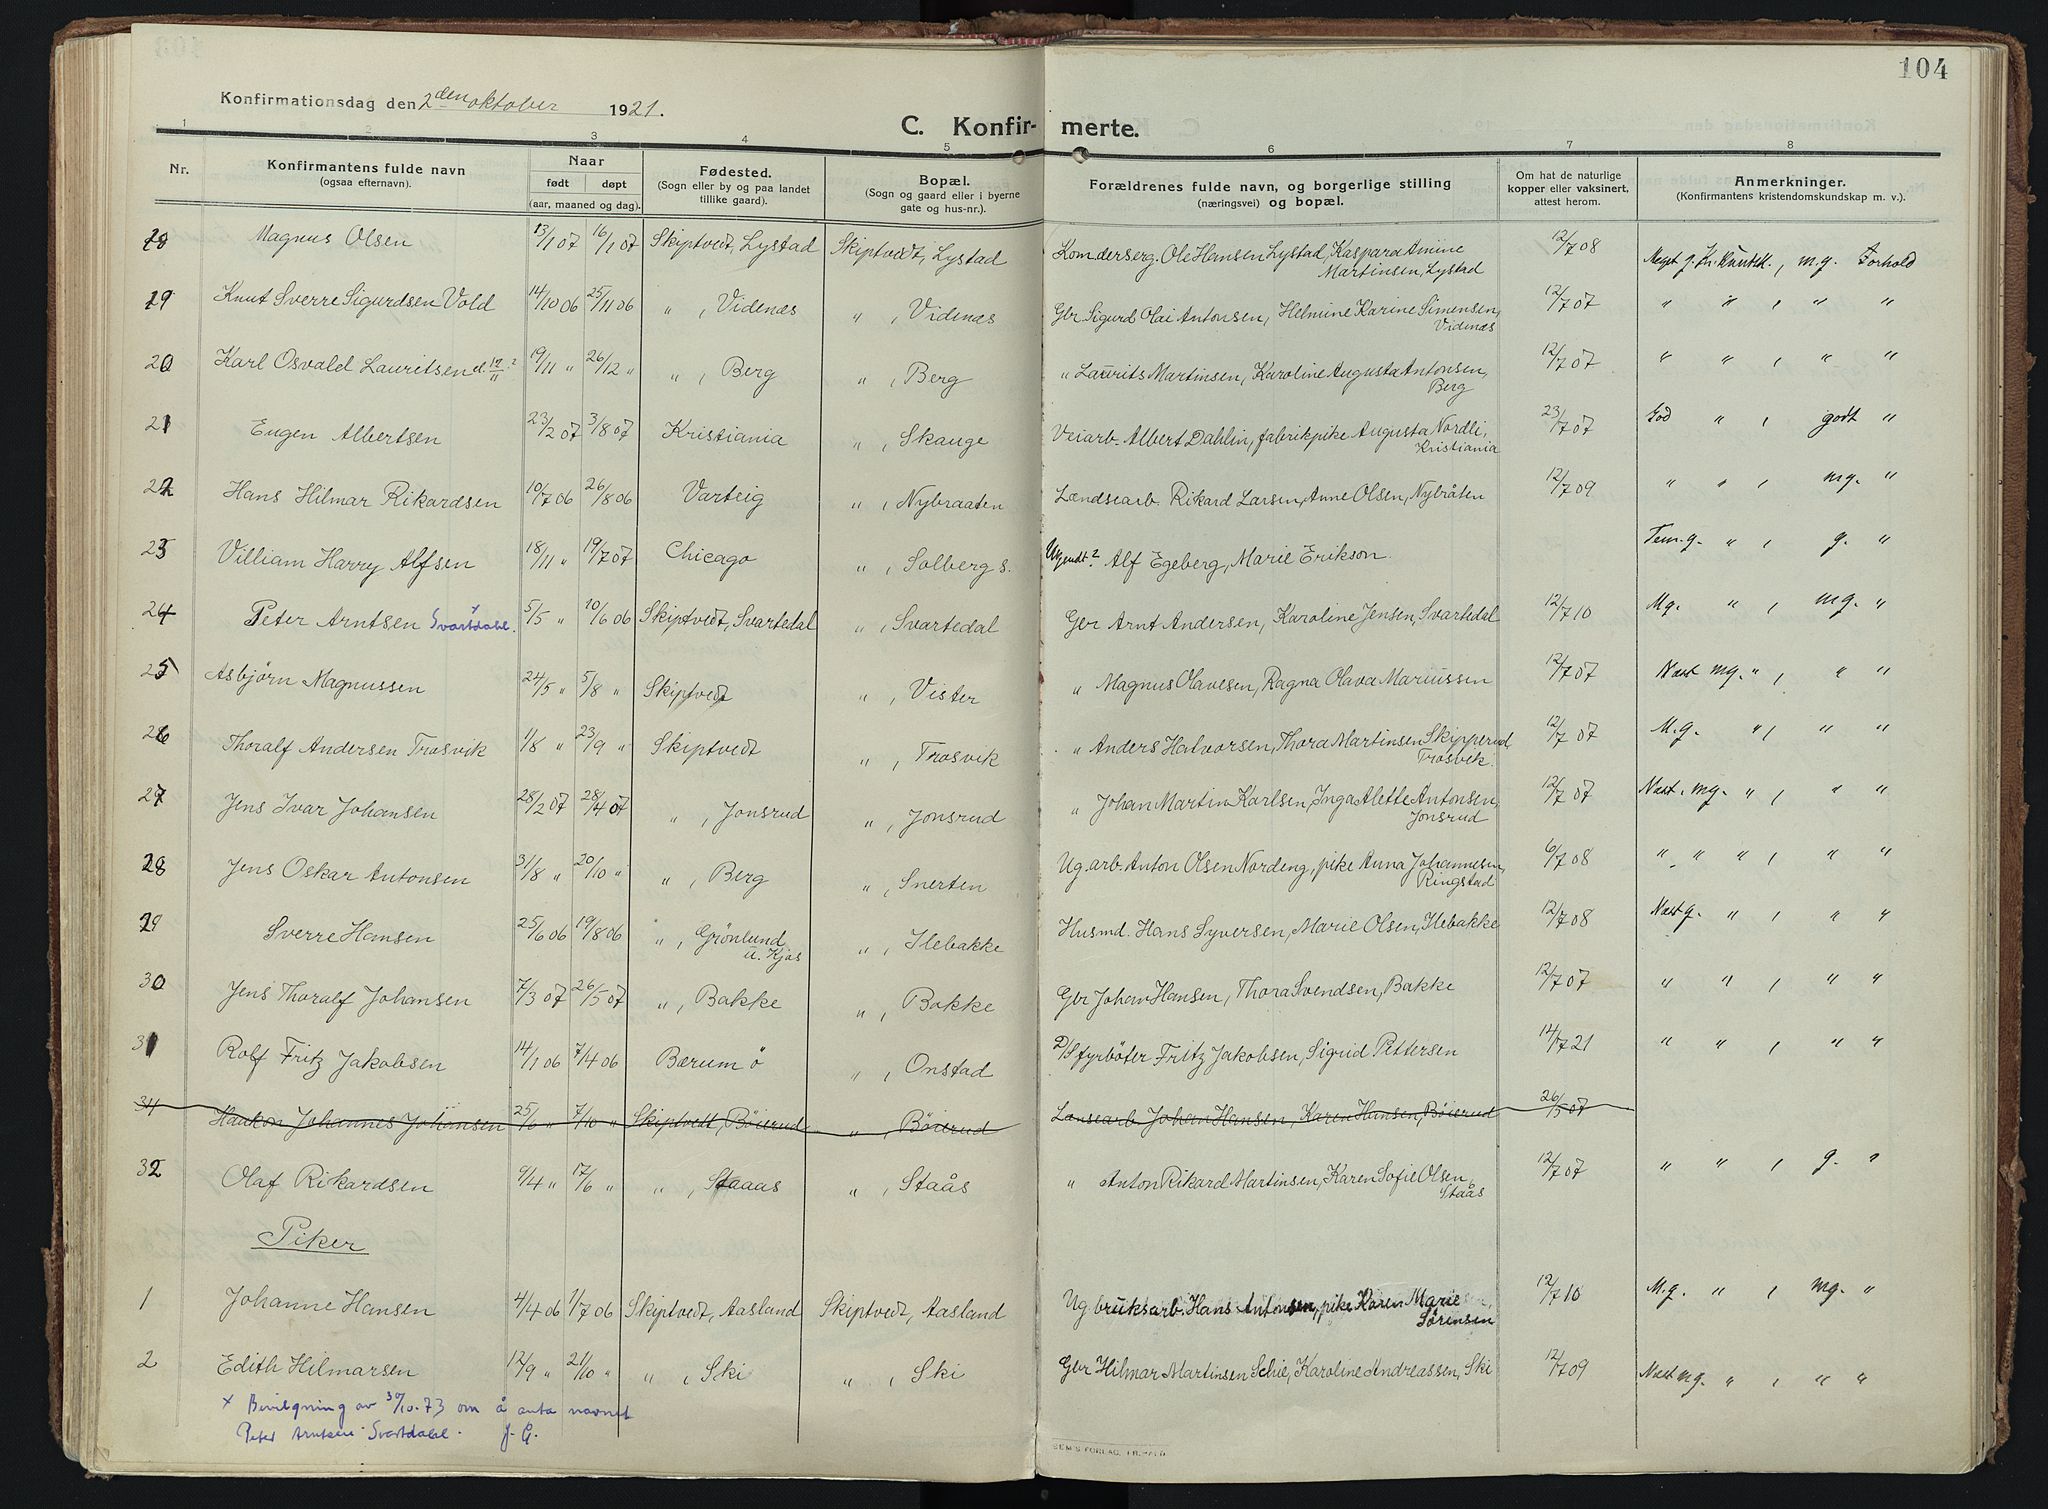 104
Konfirmationsdag den 2den oktober 1921.
C. Konfirmerte.
1 2 3 4 5 6 7 8
Nr. Konfirmantens fulde navn (ogsaa efternavn). Naar født døpt (aar, maaned og dag). Fødested. (Sogn eller by og paa landet tillike gaard). Bopæl. (Sogn og gaard eller i byerne gate og hus-nr.). Forældrenes fulde navn, og borgerlige stilling (næringsvei) og bopæl. Om hat de naturlige kopper eller vaksinert, attest herom. Anmerkninger. (Konfirmantens kristendomskundskap m. v.).
Magnus Olsen 13/1 07 16/1 07 Skiptvedt, Lystad Skiptvedt, Lystad Kom.derserg. Ole Hansen Lystad, Kaspara Amine 12/7 08 Meget g. Kr. kundsk., m.g. Forhold
Martinsen, Lystad
19 Knut Sverre Sigurdsen Vold 14/10 06 25/11 06 " , Videnæs " , Videnæs Gbr Sigurd Olai Antonsen, Helmine Karine Simensen, 12/7 07 " " , " "
Videnæs
20 Karl Osvald Lauritsen d. 12/11? 19/11 " 26/12 " " , Berg " , Berg " Laurits Martinsen, Karoline Augusta Antonsen, 12/7 07 " " , " "
Berg
21 Eugen Albertsen 23/2 07 3/8 07 Kristiania " , Skauge Veiarb. Albert Dahlin, fabrikpike Augusta Nordli, 23/7 07 God " , godt "
Kristiania
22 Hans Hilmar Rikardsen 10/7 06 26/8 06 Varteig " , Nybraaten Lændsearb. Rikard Larsen, Anne Olsen, Nybråten 12/7 09 " " , mg. "
23 Villiam Harry Alfsen 18/11 " 19/7 07 Chicago " , Solberg s. Ukjendt? Alf Egeberg, Marie Erikson. Tem. g. " , g. "
24 Peter Arntsen x Svartdahl. 5/5 " 10/6 06 Skiptvedt, Svartedal " , Svartedal Gbr Arnt Andersen, Karoline Jensen, Svartedal 12/7 10 Mg. " , mg. "
25 Asbjørn Magnussen 24/5 " 5/8 " Skiptvedt " , Vister " Magnus Olavesen, Ragna Olava Mariussen 12/7 07 Næst mg. " , " "
26 Thoralf Andersen Trosvik 1/8 " 23/9 " Skiptvedt " , Trosvik " Anders Halvorsen, Thora Martinsen Skipperud 12/7 07 M.g. " , " "
Trosvik.
27 Jens Ivar Johansen 28/2 07 28/4 07 " , Jonsrud " , Jonsrud " Johan Martin Karlsen, Inga Alette Antonsen, 12/7 07 Næst. mg. " , " "
Jonsrud
28 Jens Oskar Antonsen 31/8 " 20/10 " " , Berg " , Snerten Ug. arb. Anton Olsen Nordeng, pike Anna Johannesen, 6/7 08 " " " , " "
Ringstad
29 Sverre Hansen 25/6 06 19/8 06 " , Grønlund " , Ilebakke Husmd. Hans Syversen, Marie Olsen, Ilebakke 12/7 08 Næst g. " , " "
u. Kjos
30 Jens Thoralf Johansen 7/3 07 26/5 07 " , Bakke " , Bakke Gbr Johan Hansen, Thora Svendsen, Bakke 12/7 07 " " , " "
31 Rolf Fritz Jakobsen 14/1 06 7/4 06 Bærum ö " , Onstad D/S fyrböter Fritz Jakobsen, Sigrid Pettersen 14/7 21 " " , " "
Haakon Johannes Johansen 25/6 " 7/10 " Skiptvedt, Böierud " , Böierud Lænsearb. Johan Hansen, Karen Hansen, Böierud 26/5 07
32 Olaf Rikardsen 9/4 " 17/6 " " , Staaas " , Staås " Anton Rikard Martinsen, Karen Sofie Olsen, 12/7 07 " " , g. "
Staås
Piker
1 Johanne Hansen 4/4 06 1/7 06 Skiptvedt, Aasland Skiptvedt, Aasland Ug. bruksarb. Hans Antonsen, pike Karen Marie 12/7 10 M.g. " , mg. "
Sørensen
2 Edith Hilmarsen 12/9 " 21/10 " " , Ski " , Ski Gbr Hilmar Martinsen Schie, Karoline Andreassen, Ski 12/7 09 Næst mg. " , " "
x Bevilgning av 30/10.73 om å anta navnet
Peter Arntsen Svartdahl. J. G.
SEM'S FORLAG, FR.HALD